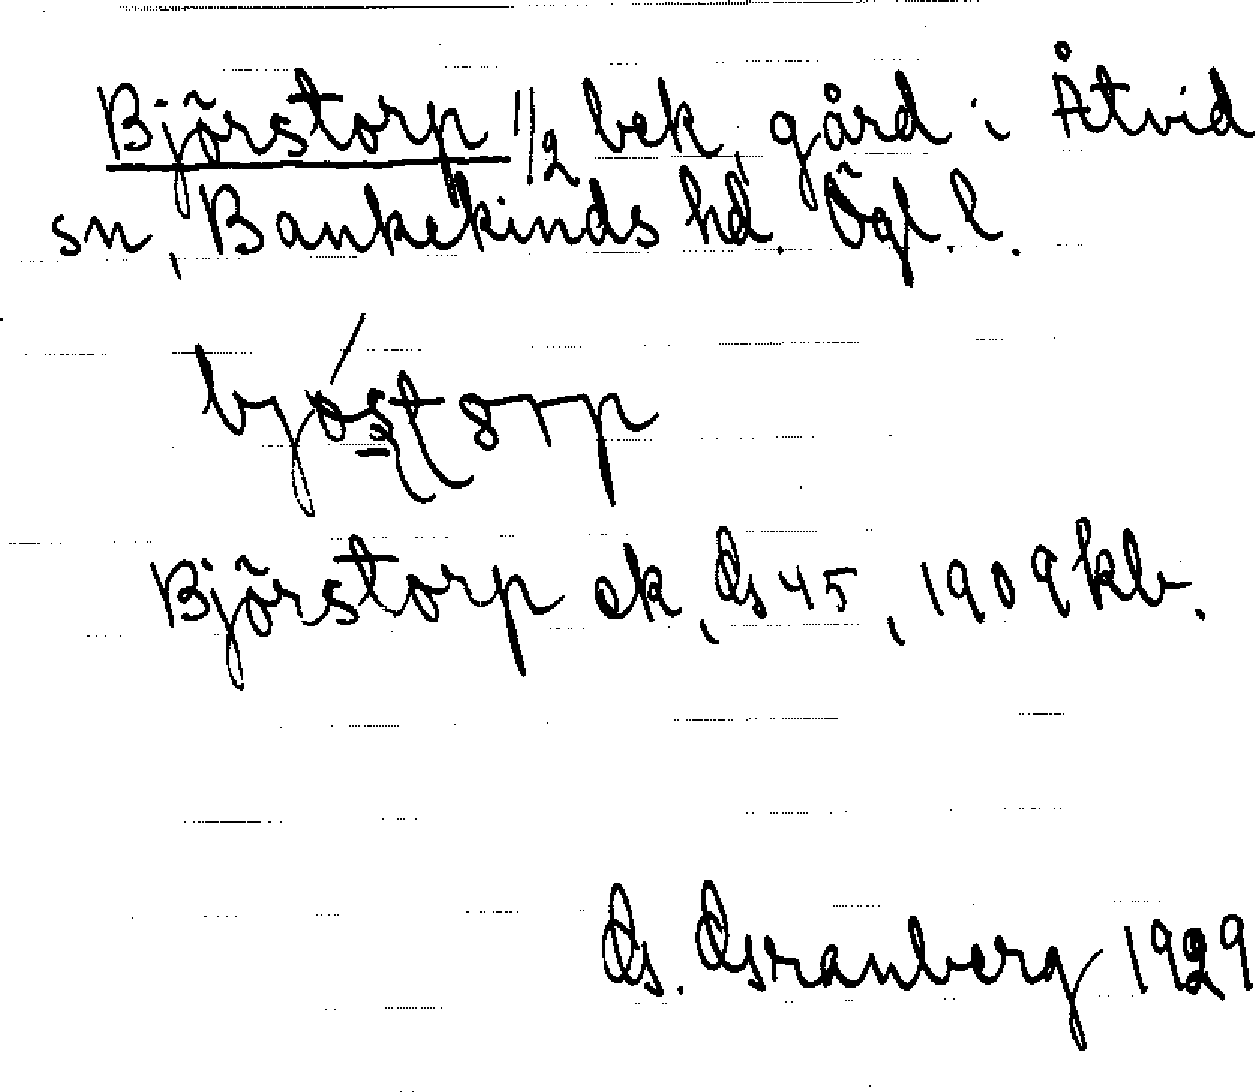 Björstorp 1/2 bek, gård i Åtvid
sn, Bankekinds hd. Ögl. l.
Björstorp ek, G 45, 1909 kb.
G. Granberg 1929